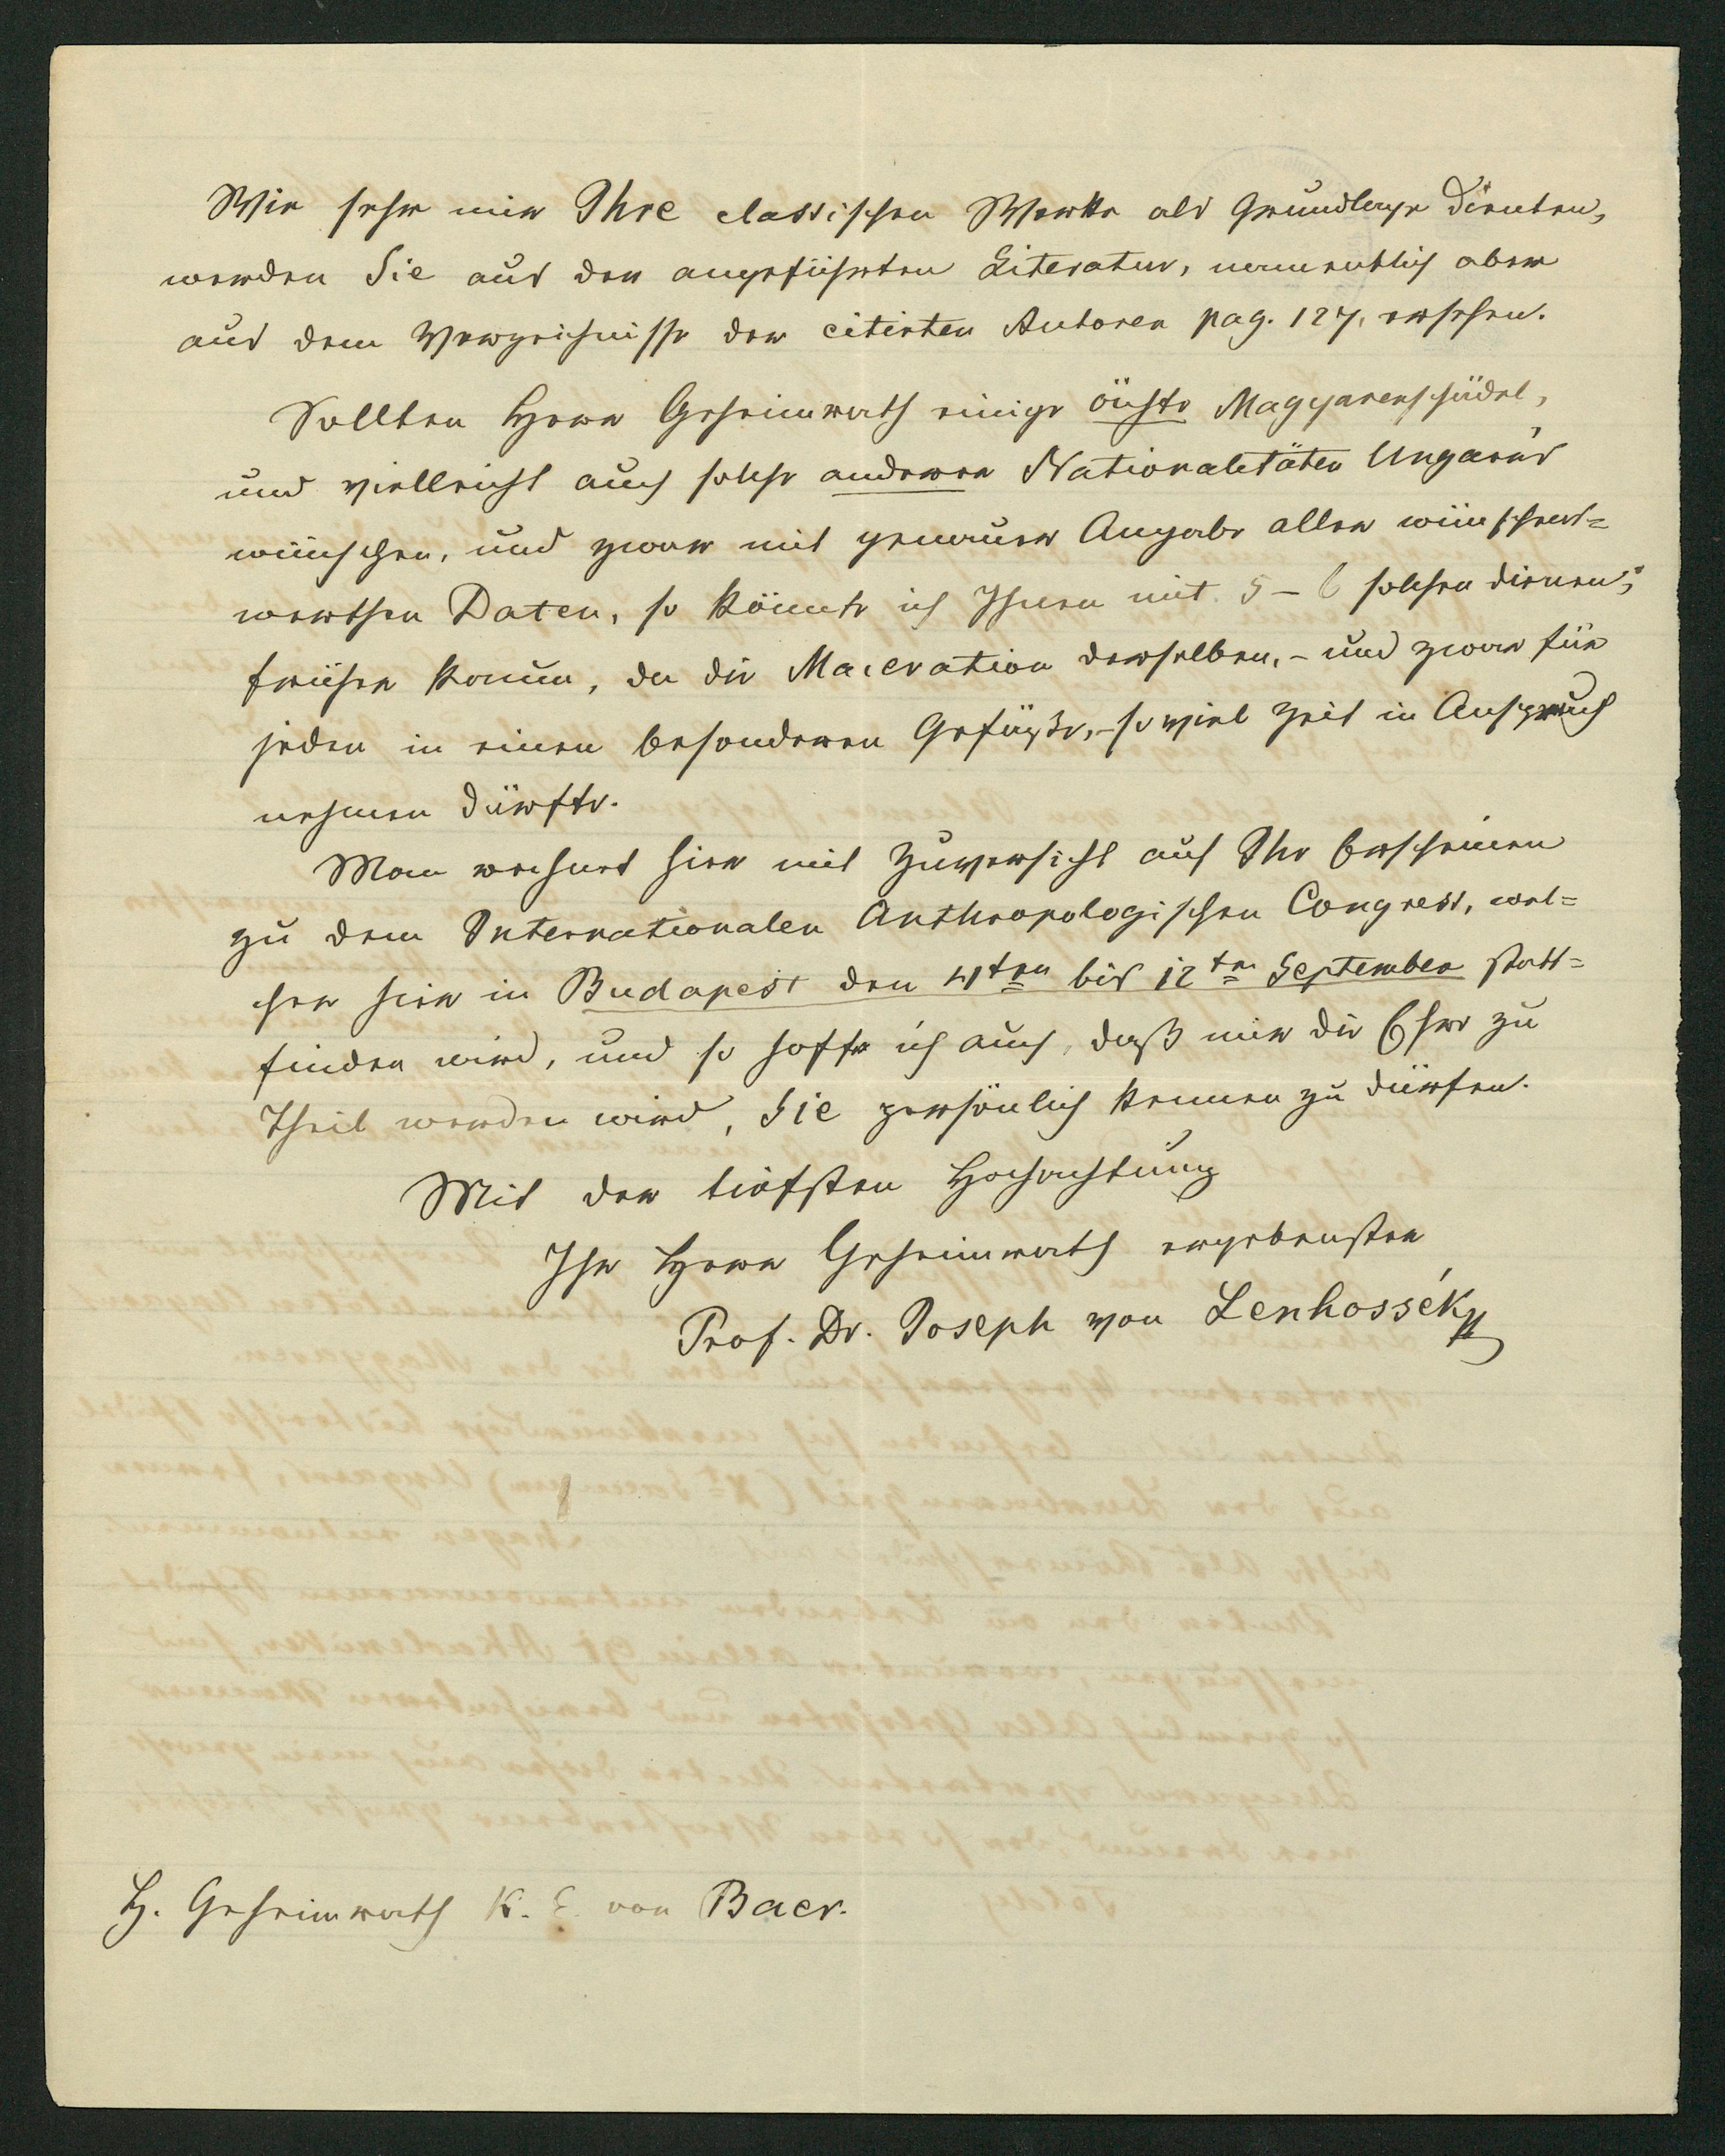 Wie sehr mir Ihre classischen Werke als Grundlage dienten,
werden Sie aus der angeführten Literatur, namentlich aber
aus dem Verzeichnisse der citirten Autoren pag. 127, ersehen.
Sollten Herr Geheimrath einige ächte Magyarenschädel,
und vielleicht auch solche anderer Nationalitäten Ungarns
wünschen, und zwar mit genauer Angabe aller wünschens=
werthen Daten, so könnte ich Ihnen mit 5 – 6 solchen dienen;
früher kaum, da die Maceration derselben, – und zwar für
jeden in einem besonderen Gefäße, – so viel Zeit in Anspruch
nehmen dürfte.
Man rechnet hier mit Zuversicht auf Ihr Erscheinen
zu dem Internationalen Anthropologischen Congress, wel=
cher hier in Budapest den 4ten bis 12ten September statt=
finden wird, und so hoffe ich auch, daß mir die Ehre zu
Theil werden wird, Sie persönlich kennen zu dürfen.
Mit der tiefsten Hochachtung
Ihr Herrn Geheimrath ergebenster
Prof. Dr. Joseph von Lenhossék
H. Geheimrath K. E. von Baer.